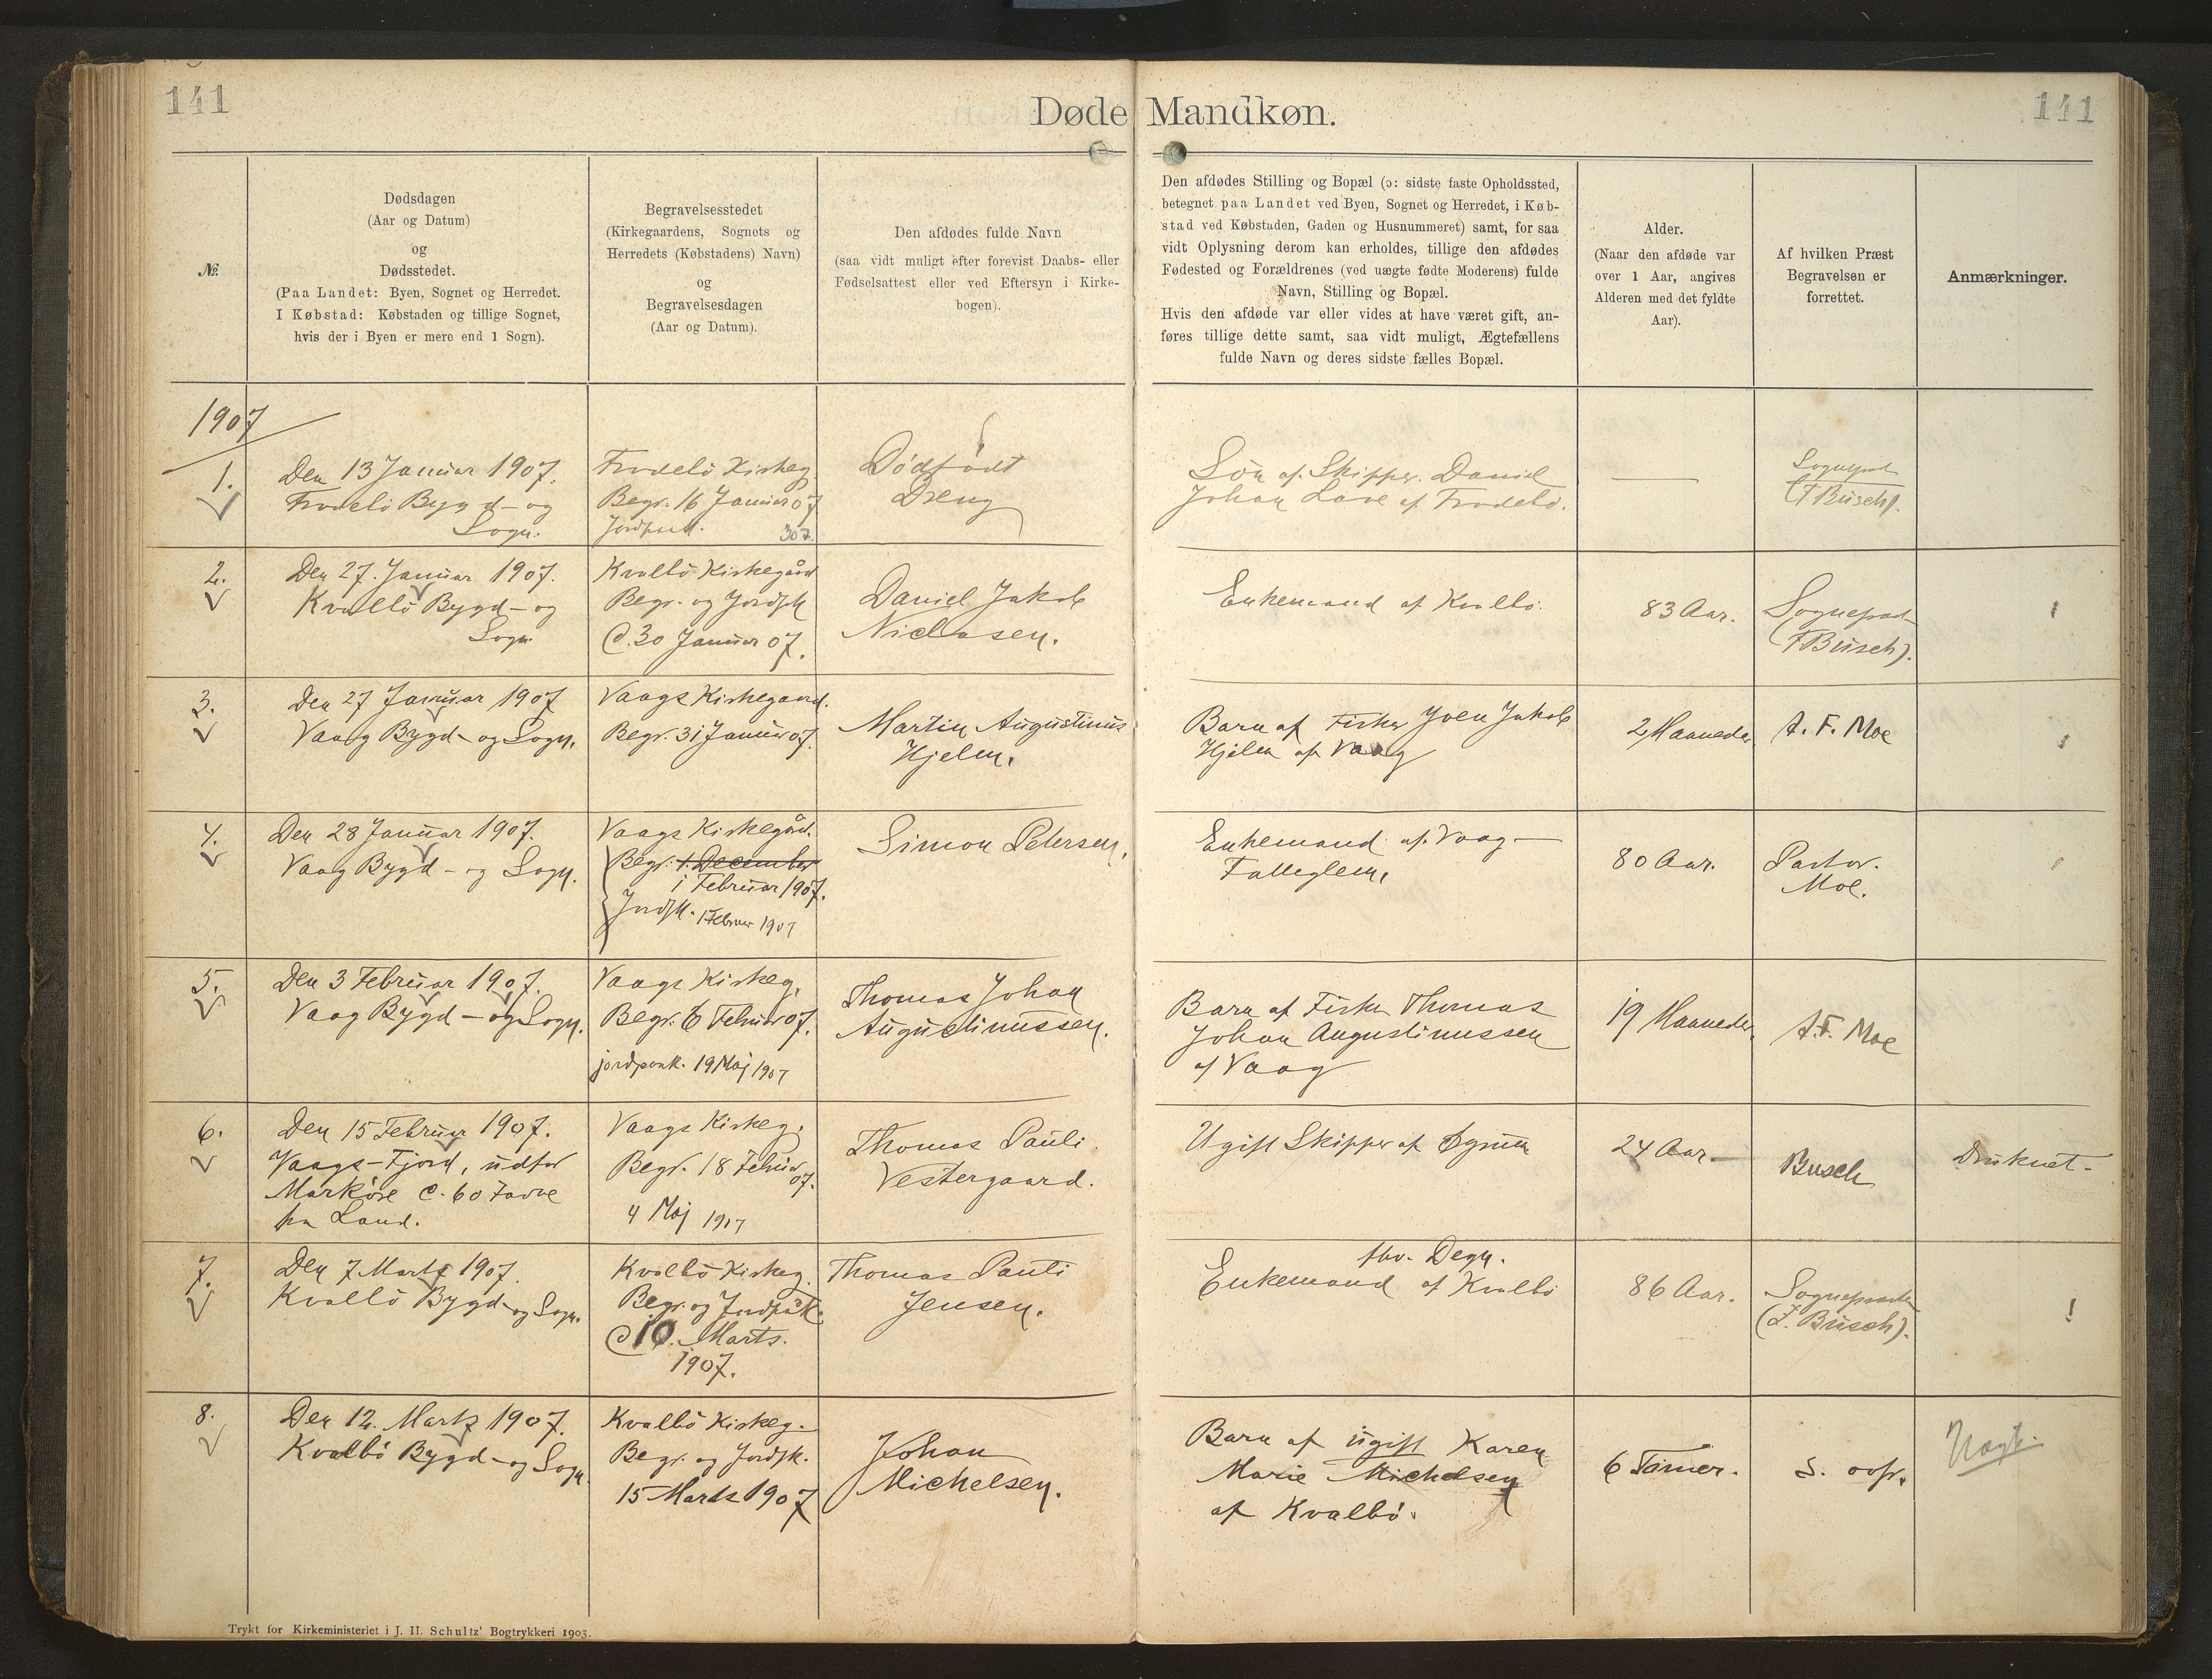 141
Døde Mandkøn.
141
№
Dødsdagen
(Aar og Datum)
og
Dødsstedet.
(Paa Landet: Byen, Sognet og Herredet.
I Købstad: Købstaden og tillige Sognet,
hvis der i Byen er mere end 1 Sogn).
Begravelsesstedet
(Kirkegaardens, Sognets og
Herredets (Købstadens) Navn)
og
Begravelsesdagen
(Aar og Datum).
Den afdødes fulde Navn
(saa vidt muligt efter forevist Daabs- eller
Fødselsattest eller ved Eftersyn i Kirke-
bogen).
Den afdødes Stilling og Bopæl (ɔ: sidste faste Opholdssted,
betegnet paa Landet ved Byen, Sognet og Herredet, i Køb-
stad ved Købstaden, Gaden og Husnummeret) samt, for saa
vidt Oplysning derom kan erholdes, tillige den afdødes
Fødested og Forældrenes (ved uægte fødte Moderens) fulde
Navn, Stilling og Bopæl.
Hvis den afdøde var eller vides at have været gift, an-
føres tillige dette samt, saa vidt muligt, Ægtefællens
fulde Navn og deres sidste fælles Bopæl.
Alder.
(Naar den afdøde var
over 1 Aar, angives
Alderen med det fyldte
Aar).
Af hvilken Præst
Begravelsen er
forrettet.
Anmærkninger.
1907
1.
Den 13 Januar 1907.
Frodebö Bygd - og
Sogn.
Frodebö Kirkeg
Begr. 16 Januar 07
307
Dödfödt
Dreng
Sön af Skipper Daniel
Johan Lave af Frodebö.
(F Busch).
2.
Den 27. Januar 1907.
Kvalbö Bygd - og
Sogn
Kvalbö Kirkegård
Begr. og Jordpk
d. 30 Januar 07.
Daniel Jakob
Niclasen.
Enkemand af Kvalbö.
83 Aar.
Sognepræst
(F Busch).
3.
Den 27 Januar 1907
Vaag Bygd - og Sogn.
Vaags Kirkegaard.
Begr. 31 Januar 07.
Martin Augustinus
Hjelm.
Barn af Fisker Joen Jakob
Hjelm af Vaag
2 Maaneder
A. F. Moe
4.
Den 28 Januar 1907.
Vaag Bygd - og Sogn.
Vaags Kirkegård.
Begr. 1. December
1 Februar 1907.
Jordpk. 1 Februar 1907
Simon Petersen,
Enkemand af Vaag -
80 Aar.
Pastor
Moe.
5.
Den 3 Februar 1907.
Vaag Bygd - og Sogn.
Vaags Kirkeg.
Begr. 6 Februar 07.
jordpaak. 19 Maj 1907
Thomas Johan
Augustinussen.
Barn af Fisker Thomas
Johan Augustinussen
af Vaag
19 Maaneder.
A. F. Moe
6.
Den 15 Februar 1907.
Vaags-Fjord, udfor
Marköre c. 60 Favne
fra Land.
Vaags Kirkeg.
Begr. 18 Februar
07.
4 Maj 1907
Thomas Pauli
Vestergaard.
Ugift Skipper af
24 Aar -
Busch
Druknet.
7.
Den 7 Marts 1907.
Kvalbö Bygd - og Sogn.
Kvalbö Kirkeg.
Begr. og Jordpåk
d 10. Marts.
1907.
Thomas Pauli
Jensen.
fhv. Degn.
Enkemand af Kvalbö
86 Aar.
Sognepræsten
(F. Busch).
8.
Den 12. Marts 1907.
Kvalbö Bygd - og Sogn.
Kvalbö Kirkeg.
Begr. og Jordpk.
15 Marts 1907
Johan
Michelsen.
Barn af ugift Karen
Marie Michelsen
af Kvalbö.
6 Timer.
S. ovfr.
Uægte
Trykt for Kirkeministeriet i J. H. Schultz' Bogtrykkeri 1903.